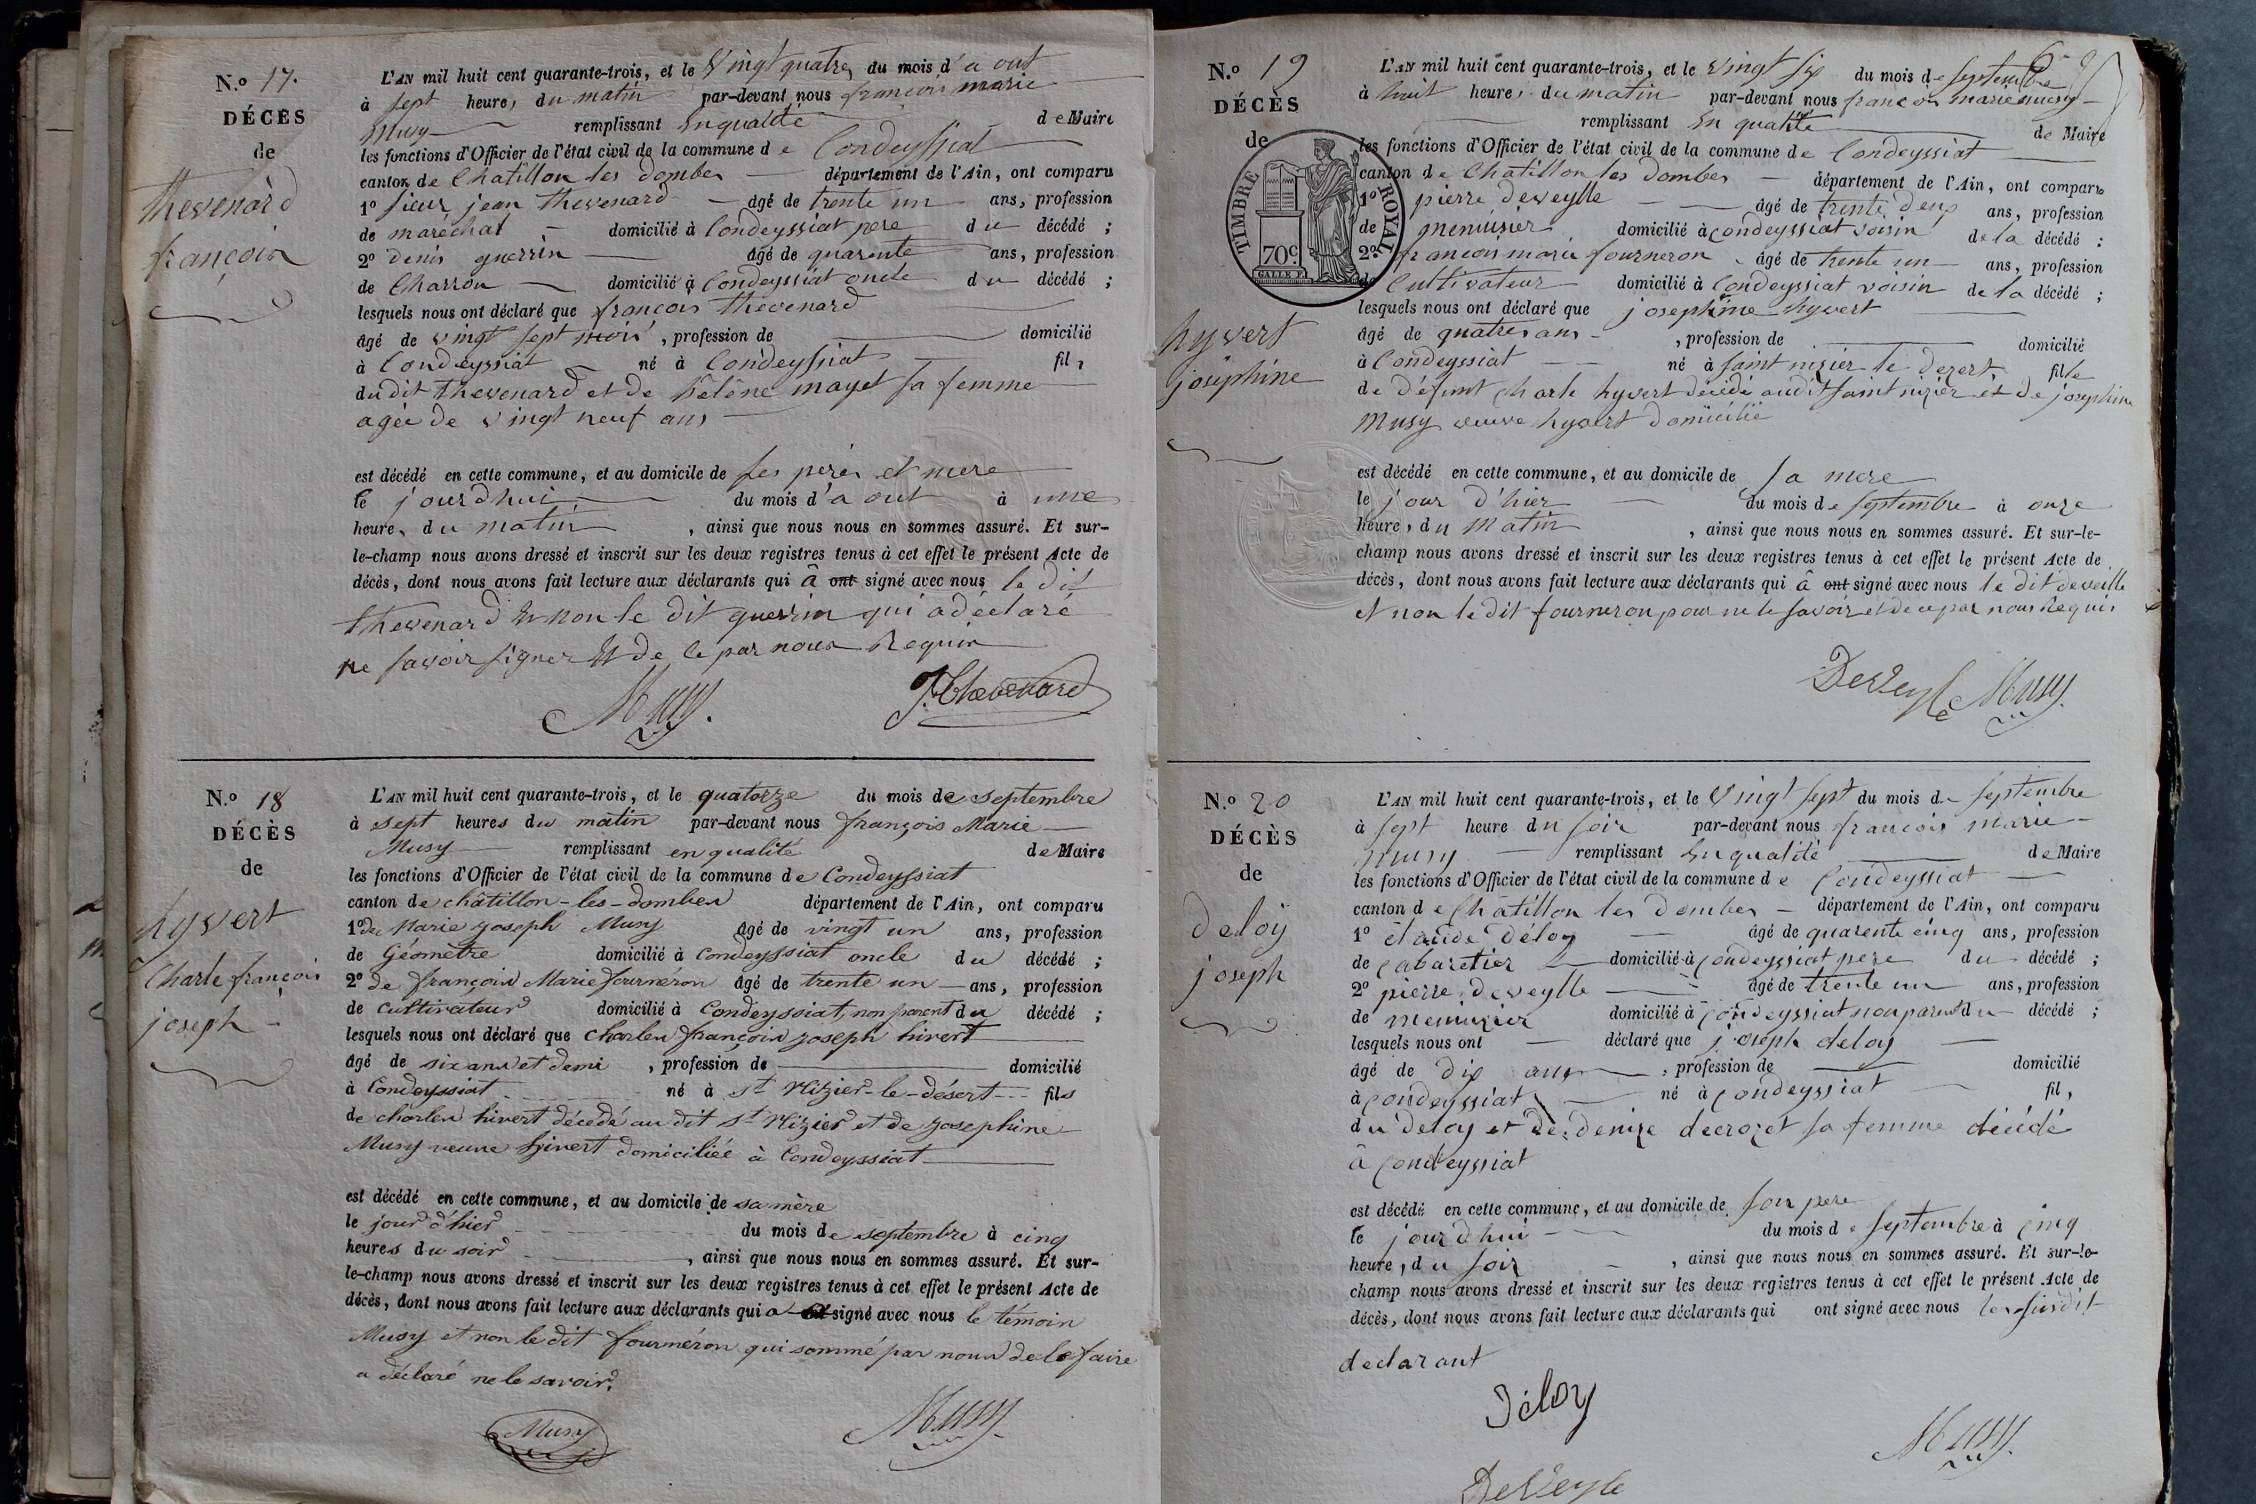 N.o 17.
DÉCÈS
de
thevenard
françois
L'AN mil huit cent quarante-trois, et le Vingt quatre du mois d'a out
à sept heures du matin par-devant nous françois marie
Musy remplissant En qualité de Maire
les fonctions d'Officier de l'état civil de la commune de Condeyssiat
canton de Chatillon les dombes département de l'Ain, ont comparu
1o sieur jean thevenard âgé de trente un ans, profession
de maréchal domicilié à Condeyssiat pere du décédé ;
2o denis guerrin âgé de quarente ans, profession
de Charron domicilié à Condeyssiat oncle du décédé ;
lesquels nous ont déclaré que françois thevenard
âgé de vingt sept mois , profession de domicilié
à Condeyssiat né à Condeyssiat fils
du dit thevenard et de hélène mayet sa femme
agée de vingt neuf ans
est décédé en cette commune, et au domicile de ses peres et mere
le jourdhui du mois d'a out à une
heure, du matin , ainsi que nous nous en sommes assuré. Et sur-
le-champ nous avons dressé et inscrit sur les deux registres tenus à cet effet le présent Acte de
décès, dont nous avons fait lecture aux déclarants qui â ont signé avec nous le dit
thevenard Et non le dit guerrin qui a déclaré
ne savoir signer Et de ce par nous Requis
Musy. J. Thevenard
N.o 18
DÉCÈS
de
hyvert
Charle françois
joseph
L'AN mil huit cent quarante-trois, et le quatorze du mois de septembre
à sept heures du matin par-devant nous françois Marie
Musy remplissant en qualité de Maire
les fonctions d'Officier de l'état civil de la commune de Condeyssiat
canton de châtillon-les-dombes département de l'Ain, ont comparu
1o de Marie joseph Musy âgé de vingt un ans, profession
de Géomètre domicilié à Condeyssiat oncle du décédé ;
2o de françois Marie fourneron âgé de trente un ans, profession
de cultivateur domicilié à Condeyssiat, non parent du décédé ;
lesquels nous ont déclaré que charles françois joseph hivert
âgé de six ans et demi , profession de domicilié
à Condeyssiat né à St Nizier-le-désert fils
de charles hivert décédé au dit St Nizier et de josephine
Musy veuve hivert domiciliée à Condeyssiat
est décédé en cette commune, et au domicile de sa mère
le jour d'hier du mois de septembre à cinq
heures du soir , ainsi que nous nous en sommes assuré. Et sur-
le-champ nous avons dressé et inscrit sur les deux registres tenus à cet effet le présent Acte de
décès, dont nous avons fait lecture aux déclarants qui a ont signé avec nous le témoin
Musy et non le dit fourneron qui sommé par nous de le faire
a déclaré ne le savoir.
Musy Musy
N.o 19
DÉCÈS
de
hyvert
josephine
TIMBRE ROYAL
70c.
GALLE F.
L'AN mil huit cent quarante-trois, et le vingt six du mois de septembre
à huit heures du matin par-devant nous françois marie musy
remplissant En qualité de Maire
les fonctions d'Officier de l'état civil de la commune de Condeyssiat
canton de Chatillon les Dombes département de l'Ain, ont comparu
1o pierre deveylle âgé de trente deux ans, profession
de menuisier domicilié à condeyssiat voisin de la décédé ;
2o francois marie fourneron âgé de trente un ans, profession
de Cultivateur domicilié à Condeyssiat voisin de la décédé ;
lesquels nous ont déclaré que josephine hyvert
âgé de quatre ans , profession de domicilié
à Condeyssiat né à saint nizier le dezert, fille
de défunt charle hyvert décédé audit saint nizier et de josephine
Musy veuve hyvert domicilié
est décédé en cette commune, et au domicile de sa mere
le jour d'hier du mois de septembre à onze
heure, du matin , ainsi que nous nous en sommes assuré. Et sur-le-
champ nous avons dressé et inscrit sur les deux registres tenus à cet effet le présent Acte de
décès, dont nous avons fait lecture aux déclarants qui â ont signé avec nous le dit deveille
et non le dit fourneron pour ne le savoir et de ce par nous Requis
DeVeyle Musy.
N.o 20
DÉCÈS
de
deloy
joseph
L'AN mil huit cent quarante-trois, et le Vingt sept du mois de septembre
à sept heure du soir par-devant nous françois marie
musy remplissant En qualité de Maire
les fonctions d'Officier de l'état civil de la commune de Condeyssiat
canton de Châtillon les Dombes département de l'Ain, ont comparu
1o claude Déloy âgé de quarente cinq ans, profession
de cabaretier domicilié à Condeyssiat pere du décédé ;
2o pierre deveylle âgé de trente un ans, profession
de menuizier domicilié à Condeyssiat non parent du décédé ;
lesquels nous ont déclaré que joseph deloy
âgé de dix ans , profession de domicilié
à Condeyssiat né à Condeyssiat fils
du deloy et de denize decrozet sa femme décédé
â condeyssiat
est décédé en cette commune, et au domicile de son pere
le jourdhui du mois de septembre à cinq
heure, du soir , ainsi que nous nous en sommes assuré. Et sur-le-
champ nous avons dressé et inscrit sur les deux registres tenus à cet effet le présent Acte de
décès, dont nous avons fait lecture aux déclarants qui ont signé avec nous les susdit
declarant
Déloy
Musy.
DeVeyle